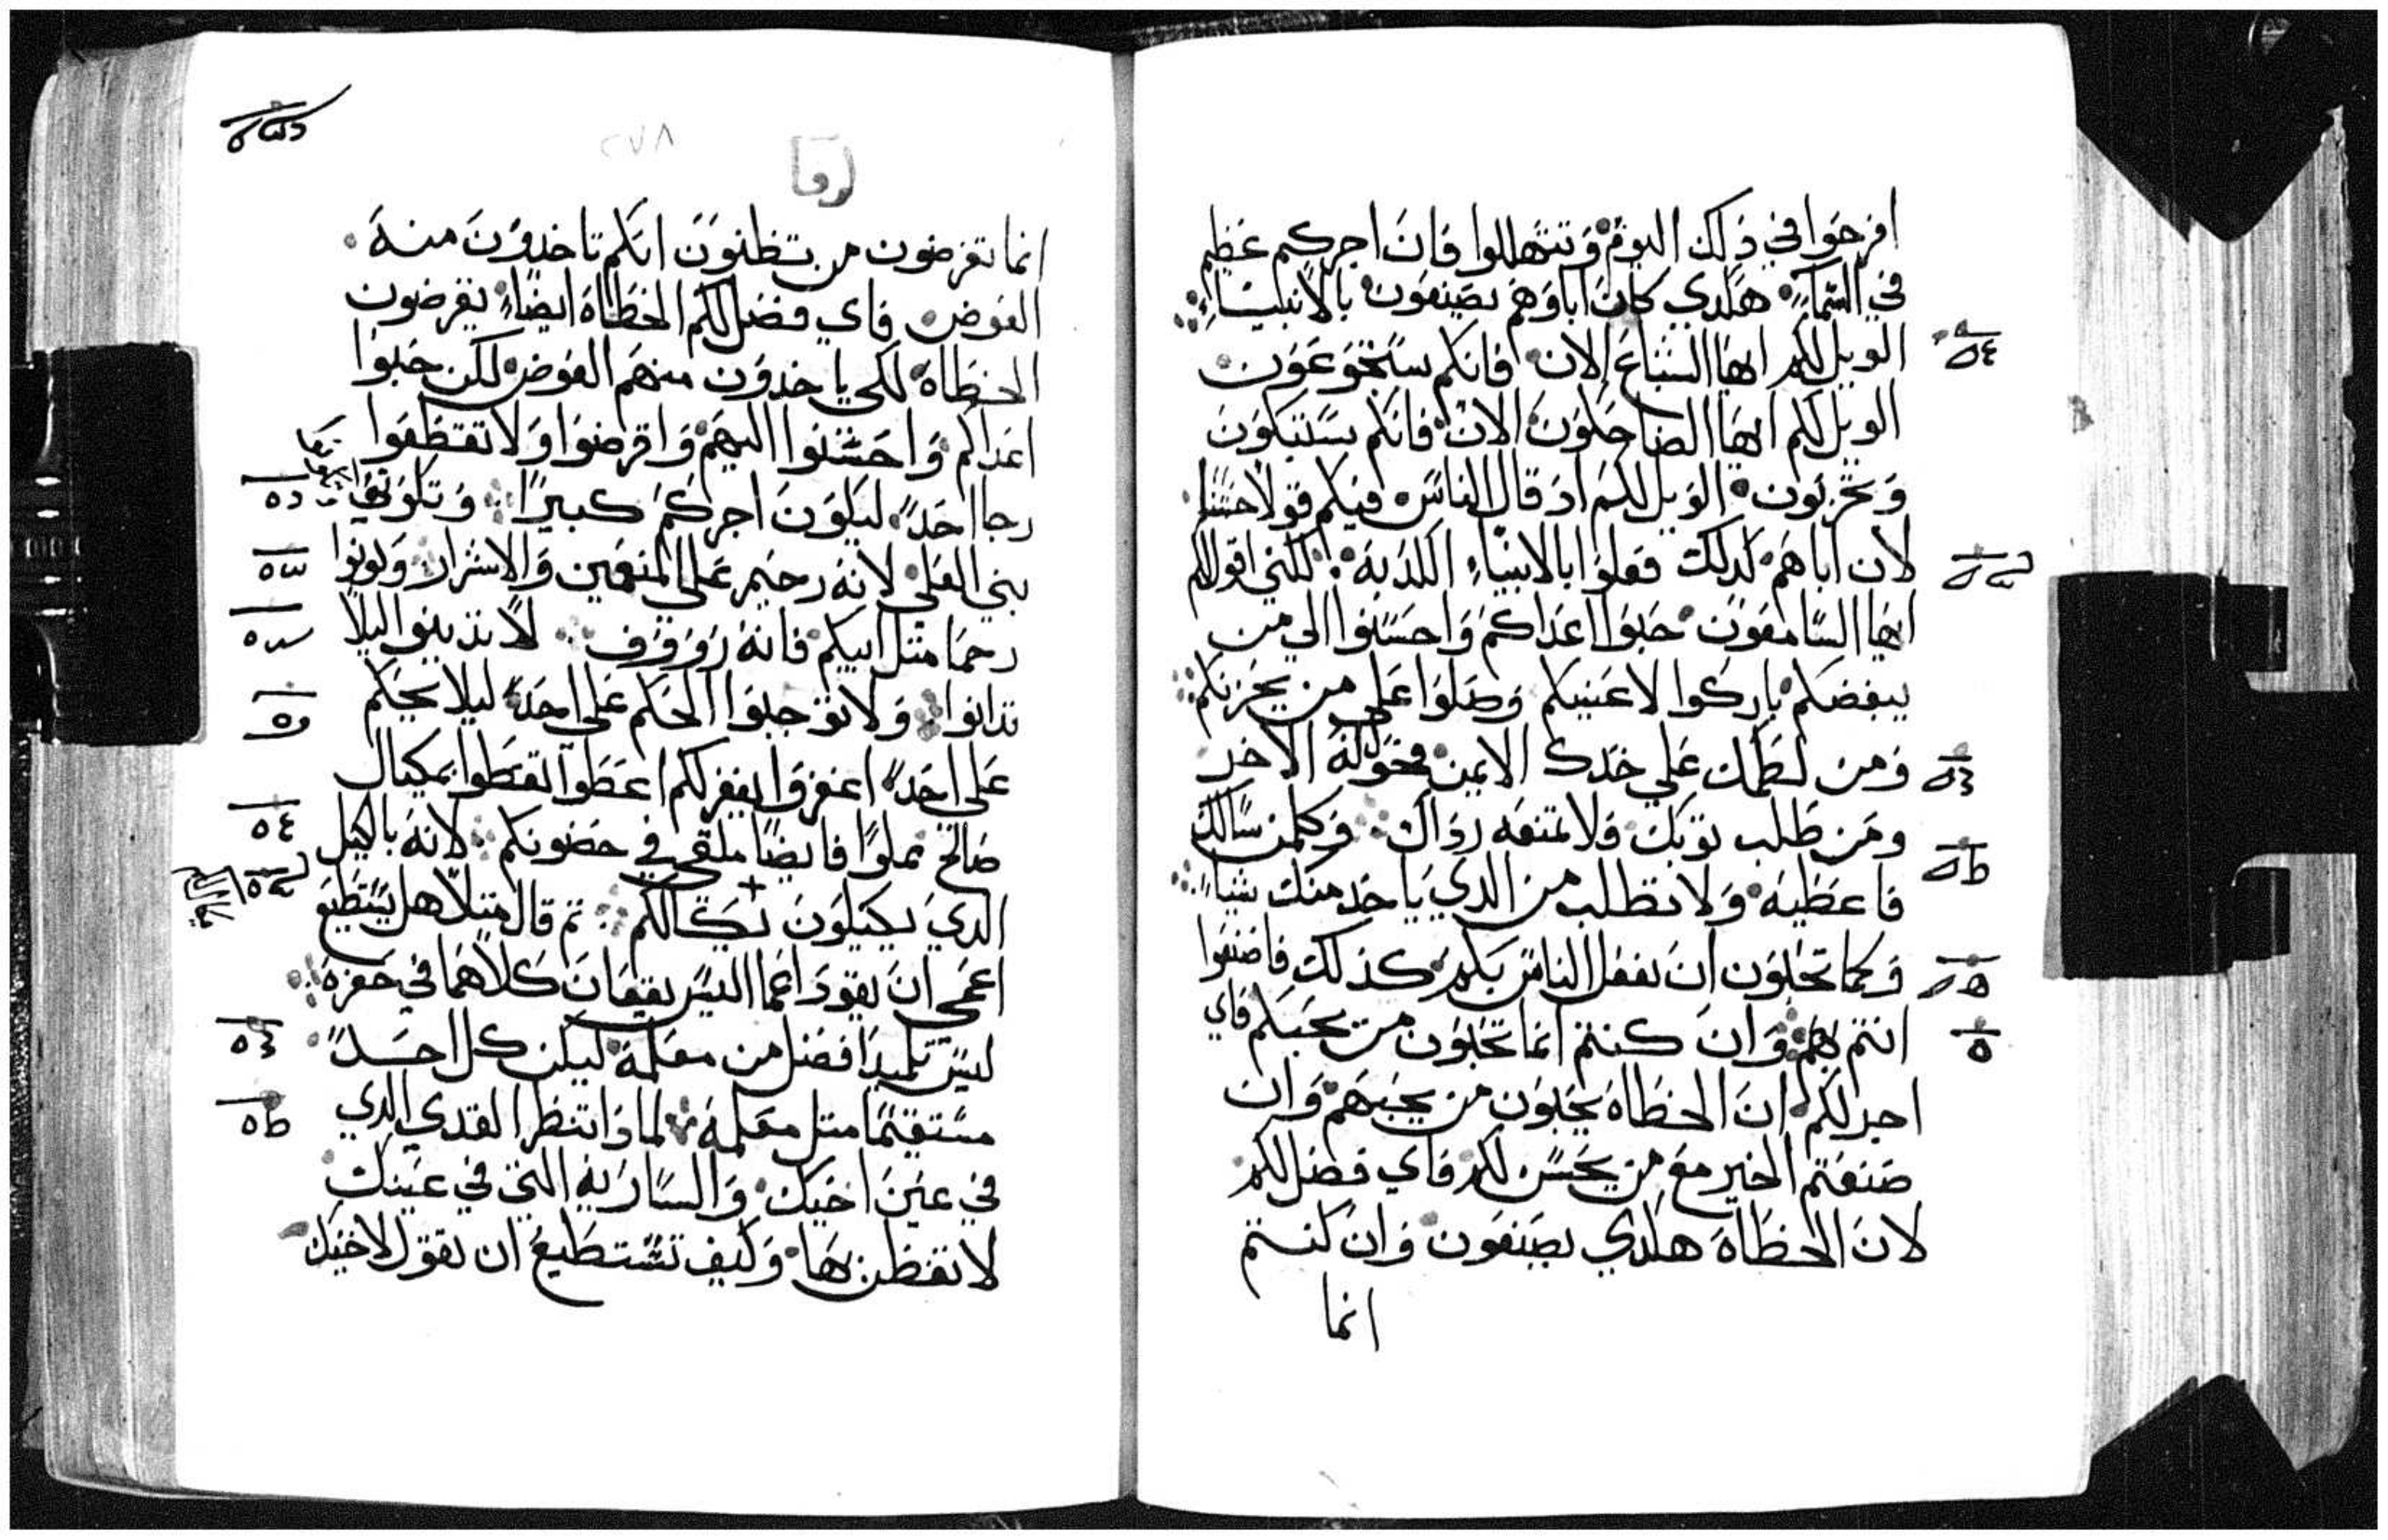 افرحوا في ذلك اليوم وتتهللوا فان اجركم عظيم
في السماء هكدي كان اباوهم يصنعون بالانبياء
الويل لكم ايها الشباع الان فانكم ستجوعون
الويل لكم ايها الضاحكون الان فانكم ستبكون
وتحزنون الويل لكم اد قال الناس فيكم قولا حسنا
لان اباهم كدلك فعلوا بالانبياء الكدبة لكني اقول لكم
ايها السامعون حبوا اعداكم واحسنوا الي من
يبغضكم باركوا لاعنيكم وصلوا علي من يحزنكم
ومن لطمك علي خدك الايمن فحول له الاخر
ومن طلب توبك فلا تمنعه رداك وكلمن سالك
فاعطيه ولا تطلب من الدي ياخد منك شيا
وكما تحبون ان يفعل الناس بكم كذلك فاصنعوا
انتم بهم وان كنتم انما تحبون من يحبكم فاي
اجر لكم ان الخطاه يحبون من يحبهم وان
صنعتم الخير مع من يحسن لكم فاي فضل لكم
لان الخطاه هكدي يصنعون وان كنتم
انما
٢٧٨
انما تقرضون من تظنون انكم تاخدون منه
العوض فاي فضل لكم الخطاه ايضا يقرضون
الخطاه لكي ياخدون منهم العوض لكن حبوا
اعداكم واحسنوا اليهم واقرضوا ولا تقطعوا
رجا احد ليكون اجركم كبيرا وتكونوا
بني العلي لانه رحيم علي المنعمين والاشرار وكونوا
رحما متل ابيكم فانه رووف لا تدينوا ليلا
تدانوا ولا توجبوا الحكم علي احد ليلا يحكم
علي احد اغفروا يغفر لكم اعطوا تعطوا بمكيال
صالح مملوا فايضا ملقي في حضونكم لانه بالكيل
الدي تكيلون يكال لكم تم قال متلا هل يستطيع
اعمي ان يقود اعما اليس يقعان كلاهما في حفره
ليس تلميد افضل من معلمه ليكن كل احد
مستقيما متل معلمه لمادا تنظر القدي الدي
في عين اخيك والساريه التي في عينك
لا تفطن بها وكيف تستطيع ان تقول لاخيك